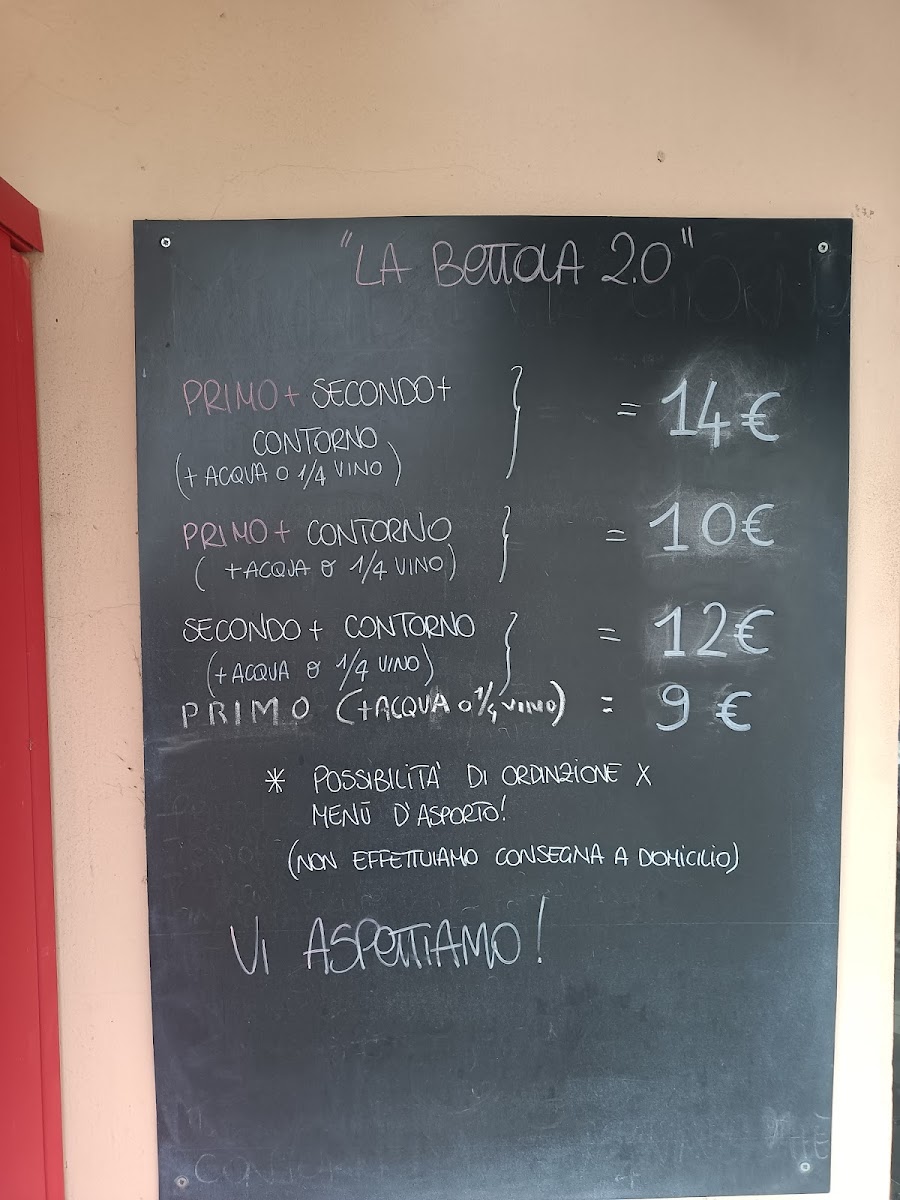 "LA BETTOLA 2.0"
PRIMO + SECONDO +
CONTORNO
(+ ACQUA O 1/4 VINO)
= 14€
PRIMO + CONTORNO
( +ACQUA O 1/4 VINO)
= 10€
SECONDO + CONTORNO
(+ ACQUA O 1/4 VINO)
= 12€
PRIMO (+ACQUA O 1/4 VINO) = 9 €
* POSSIBILITA' DI ORDINZIONE X
MENÙ D'ASPORTO!
(NON EFFETTUIAMO CONSEGNA A DOMICILIO)
VI ASPETTIAMO!